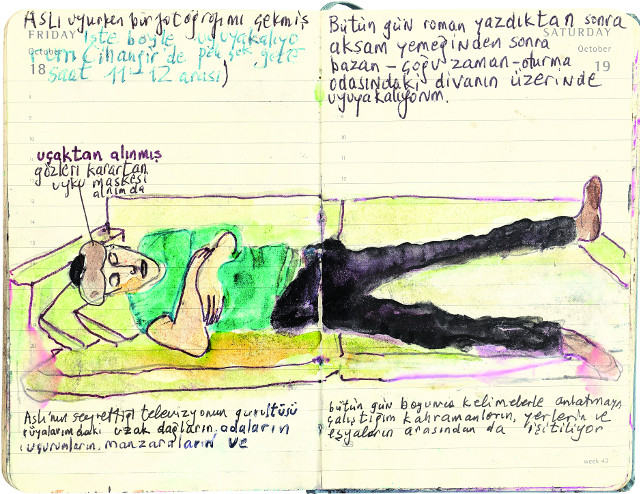 ASLI uyurken bir fotoğrafımı çekmiş
FRIDAY
October
18
işte böyle uyuyakalıyo
rum Cihangir'de pek çok gece
saat 11-12 arası)
uçaktan alınmış
gözleri karartan
uyku maskesi
alnımda
Aslı'nın seyrettiği televizyonun gürültüsü
rüyalarımdaki uzak dağların, adaların
uçurumların, manzaraların ve
Bütün gün roman yazdıktan sonra
SATURDAY
October
19
akşam yemeğinden sonra
bazan - çoğu zaman - oturma
odasındaki divanın üzerinde
uyuyakalıyorum.
bütün gün boyunca kelimelerle anlatmaya
çalıştığım kahramanların, yerlerin ve
eşyaların arasından da işitiliyor
week 42